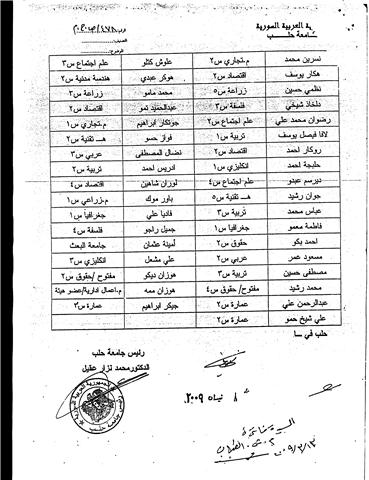 ية العربية السورية
جامعة حلب
نسرين محمد م.تجاري س٢ علوش كللو علم اجتماع س٣
هكار يوسف اقتصاد س٢ هوكر عبدي هندسة مدنية س٢
نظمي حسين زراعة س٥ محمد مامو زراعة س٣
دلخاذ شيخي فلسفة س٣ عبدالحميد تمو اقتصاد س٢
رضوان محمد علي علم اجتماع س٢ جوتكار ابراهيم م.تجاري س١
لافا فيصل يوسف تربية س١ فواز حسو هـ تقنية س٢
روكار احمد اقتصاد س٢ نضال المصطفى عربي س٣
خليجة احمد انكليزي س١ ادريس احمد تربية س٢
ديرسم عبدو علم اجتماع س٤ لوران شاهين اقتصاد س٤
جوان رشيد هـ تقنية س٥ باور موك م.زراعي س١
عباس محمد تربية س٣ فاديا علي جغرافيا س١
فاطمة معمو جغرافيا س١ جميل راجو فلسفة س٤
احمد بكو حقوق س٢ أمينة عثمان جامعة البعث
مسعود عمر عربي س٢ علي مشعل انكليزي س٣
مصطفى حسين تربية س٣ هوزان ديكو مفتوح /حقوق س٢
محمد رشيد مفتوح/ حقوق س٤ هوزان ممه م.اعمال ادارية/عضو هيئة
عبدالرحمن علي عمارة س٢ جيكر ابراهيم عمارة س٣
علي شيخ حمو عمارة س٢
حلب في
رئيس جامعة حلب
الدكتور محمد نزار عقيل
٨ ٢٠٠٩